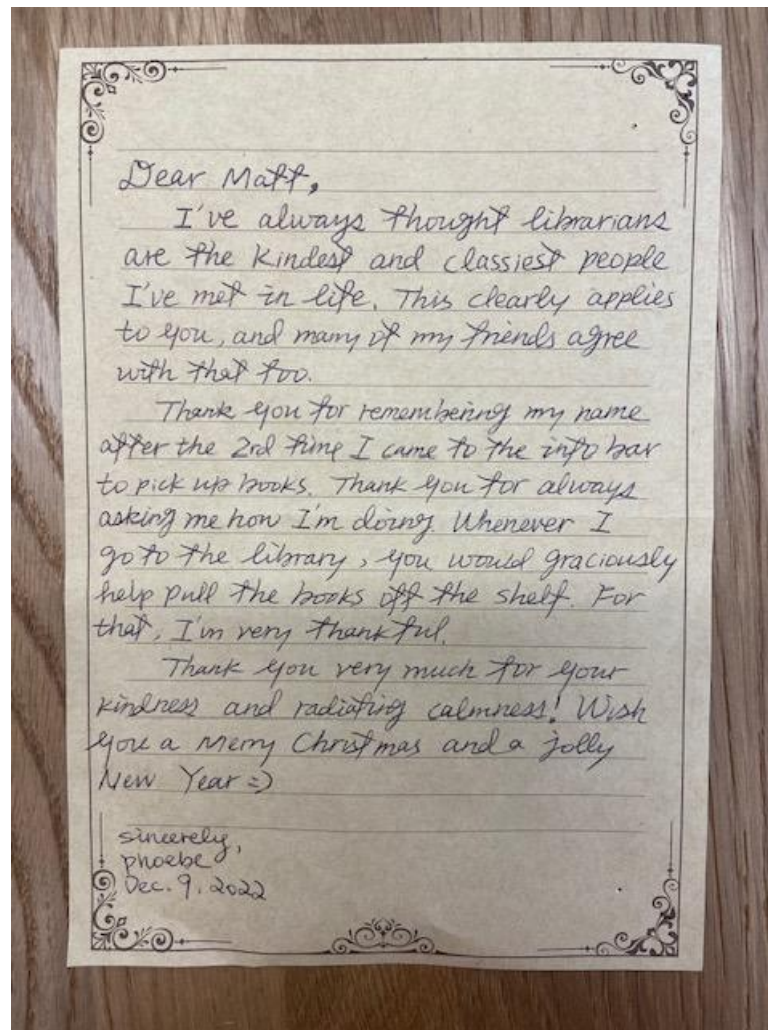 Dear Matt,
I've always thought librarians
are the kindest and classiest people
I've met in life. This clearly applies
to you, and many of my friends agree
with that too.
Thank you for remembering my name
after the 2nd time I came to the info bar
to pick up books. Thank you for always
asking me how I'm doing. Whenever I
go to the library, you would graciously
help pull the books off the shelf. For
that, I'm very thankful.
Thank you very much for your
kindness and radiating calmness! Wish
you a Merry Christmas and a jolly
New Year =)
sincerely,
phoebe
Dec. 9, 2022